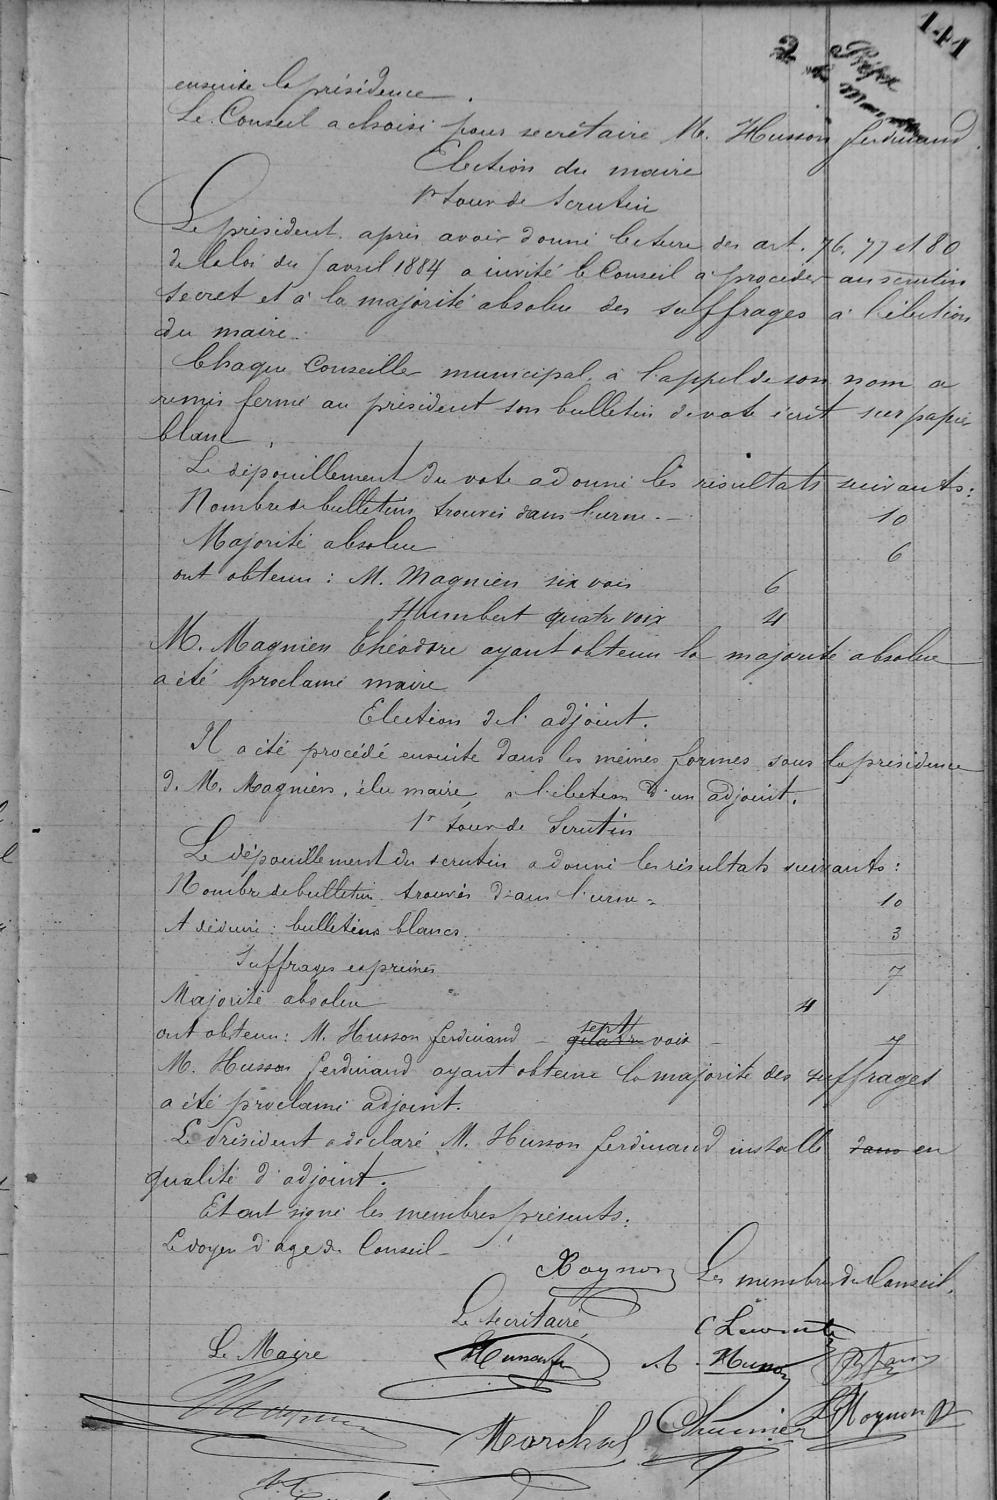 141
2
Préfet
ensuite la présidence.
Le Conseil a choisi pour secrétaire M. Husson ferdinand.
Election du maire
1r tour de Scrutin
Le président, après avoir donné lecture des art. 76. 77 et 80
de la loi du 5 avril 1884 a invité le Conseil à procéder au scrutin
secret et à la majorité absolue des suffrages à l'élection
du maire.
Chaque Conseiller municipal, à l'appel de son nom a
remis fermé au président son bulletin de vote écrit sur papier
blanc.
Le dépouillement du vote a donné les résultats suivants:
Nombre de bulletins trouvés dans l'urne. — 10
Majorité absolue 6
ont obtenu : M. Magnien six voix 6
Humbert quatre voix 4
M. Magnien théodore ayant obtenu la majorité absolue
a été proclamé maire
Election de l'adjoint.
Il a été procédé ensuite dans les mêmes formes sous la présidence
de M. Magnien, élu maire, à l'élection d'un adjoint.
1r tour de Scrutin
Le dépouillement du scrutin a donné les résultats suivants :
Nombre de bulletins trouvés dans l'urne 10
A déduire : bulletins blancs. 3
Suffrages exprimés 7
Majorité absolue 4
ont obtenu : M. Husson ferdinand — quatre sept voix — 7
M. Husson ferdinand ayant obtenu la majorité des suffrages
a été proclamé adjoint.
Le Président a déclaré M. Husson ferdinand installé dans en
qualité d'adjoint.
Et ont signé les membres présents.
Le doyen d'age du Conseil —
Roynon
Les membres du Conseil.
Le secrétaire
Le Maire
Husson
A. Husson
Magnien
Marchal
Roynon